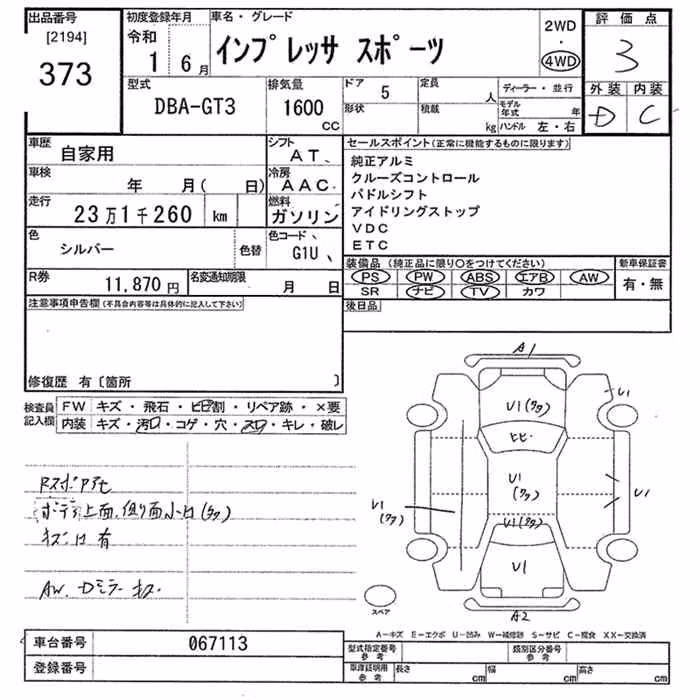 出品番号
[2194]
373
初度登録年月
令和
1 6月
車名・グレード
インプレッサ スポーツ
2WD
・
4WD
評価点
3
型式
DBA-GT3
排気量
1600
cc
ドア 5
定員
人
形状
積載
kg
ディーラー・並行
モデル年式 年
ハンドル 左・右
外装 内装
D C
車歴
自家用
シフト
AT、
車検
年 月( 日)
冷房
AAC
走行
23万1千260 km
燃料
ガソリン
色
シルバー
色替
色コード、
G1U、
R券
11,870円
名変通知期限
月 日
セールスポイント(正常に機能するものに限ります)
純正アルミ
クルーズコントロール
パドルシフト
アイドリングストップ
VDC
ETC
装備品(純正品に限り○をつけてください)
PS PW ABS エアB AW
SR ナビ TV カワ
新車保証書
有・無
後日品
注意事項申告欄(不具合内容等は具体的に記入して下さい)
修復歴 有〔箇所 〕
検査員記入欄
FW キズ・飛石・ヒビ割・リペア跡・×要
内装 キズ・汚レ・コゲ・穴・スレ・キレ・破レ
ボデー上面、
キズ 有
AW、Dミラーキズ
A1
U1(タタ)
U1
ヒビ
U1
(タタ)
U1
(タタ)
U1
U1(タタ)
U1
A2
スペア
A−キズ E−エクボ U−凹み W−補修跡 S−サビ C−腐食 XX−交換済
車台番号 067113
登録番号
型式指定番号
参考
類別区分番号
参考
車庫証明用
参考
長さ cm
幅 cm
高さ cm